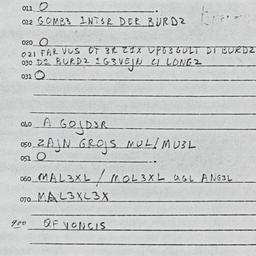 011 O
012 GOMB3 1NT3R DER BURD2
020 O
021 FAR VUS OT 3R Z1X UFG3GULT DI BURD2
030 D1 BURD2 1G3VEJN C1 LONG2
031 O
040 A GOJD3R
050 ZAJN GROJS MUL/MU3L
051 O
060 MAL3XL / MOL3XL UGL ANG3L
070 MAL3XL3X
900 QF VONCIS